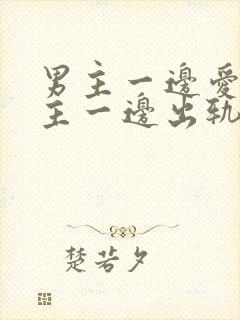 男主一邊愛
主一邊出軌
楚若夕